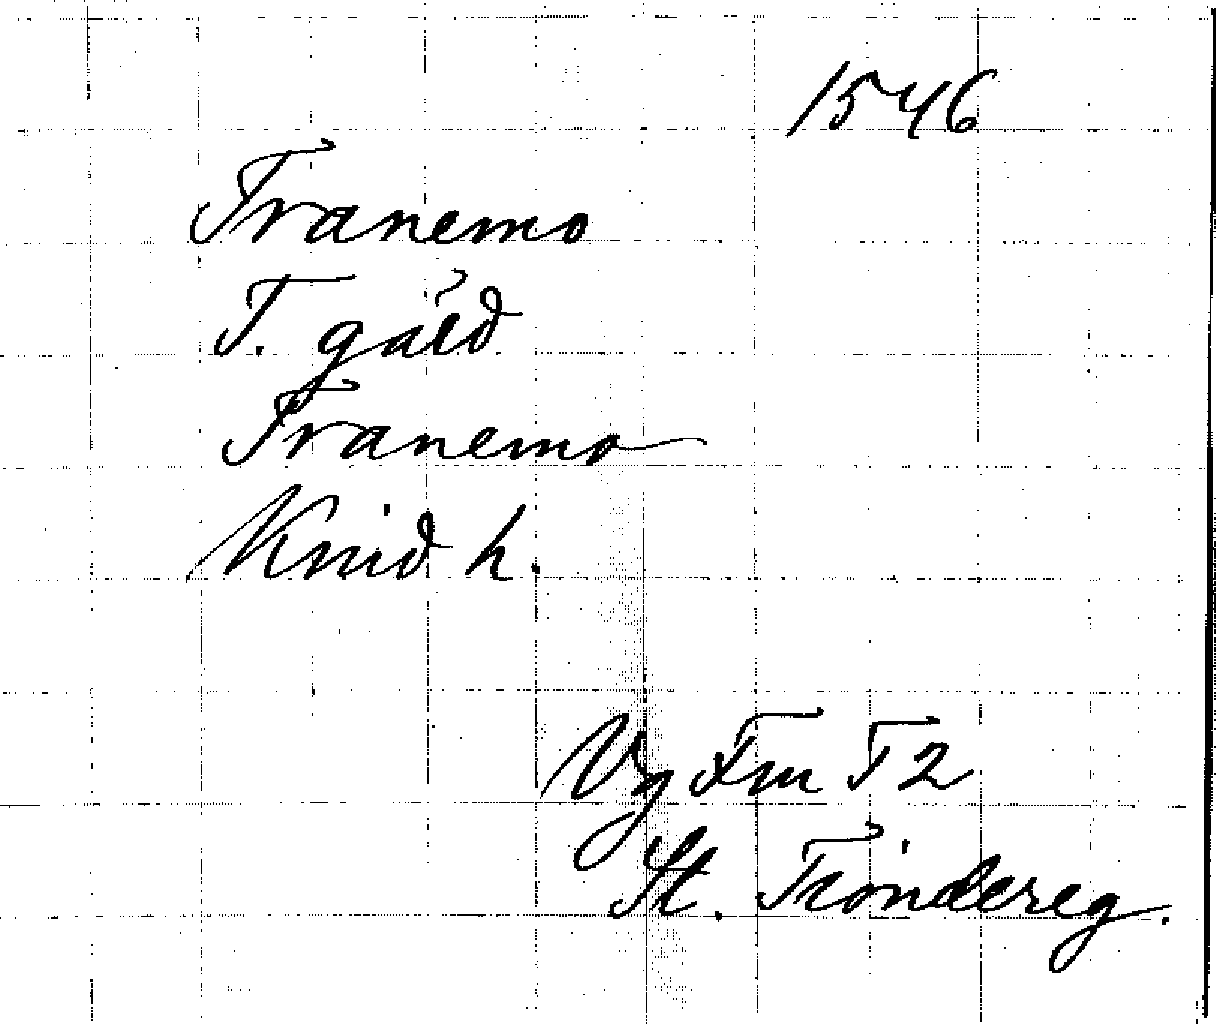 1546
Tranemo
T. gård
Tranemo
Kind h.
Vg Fm T2
St. Tiondereg.